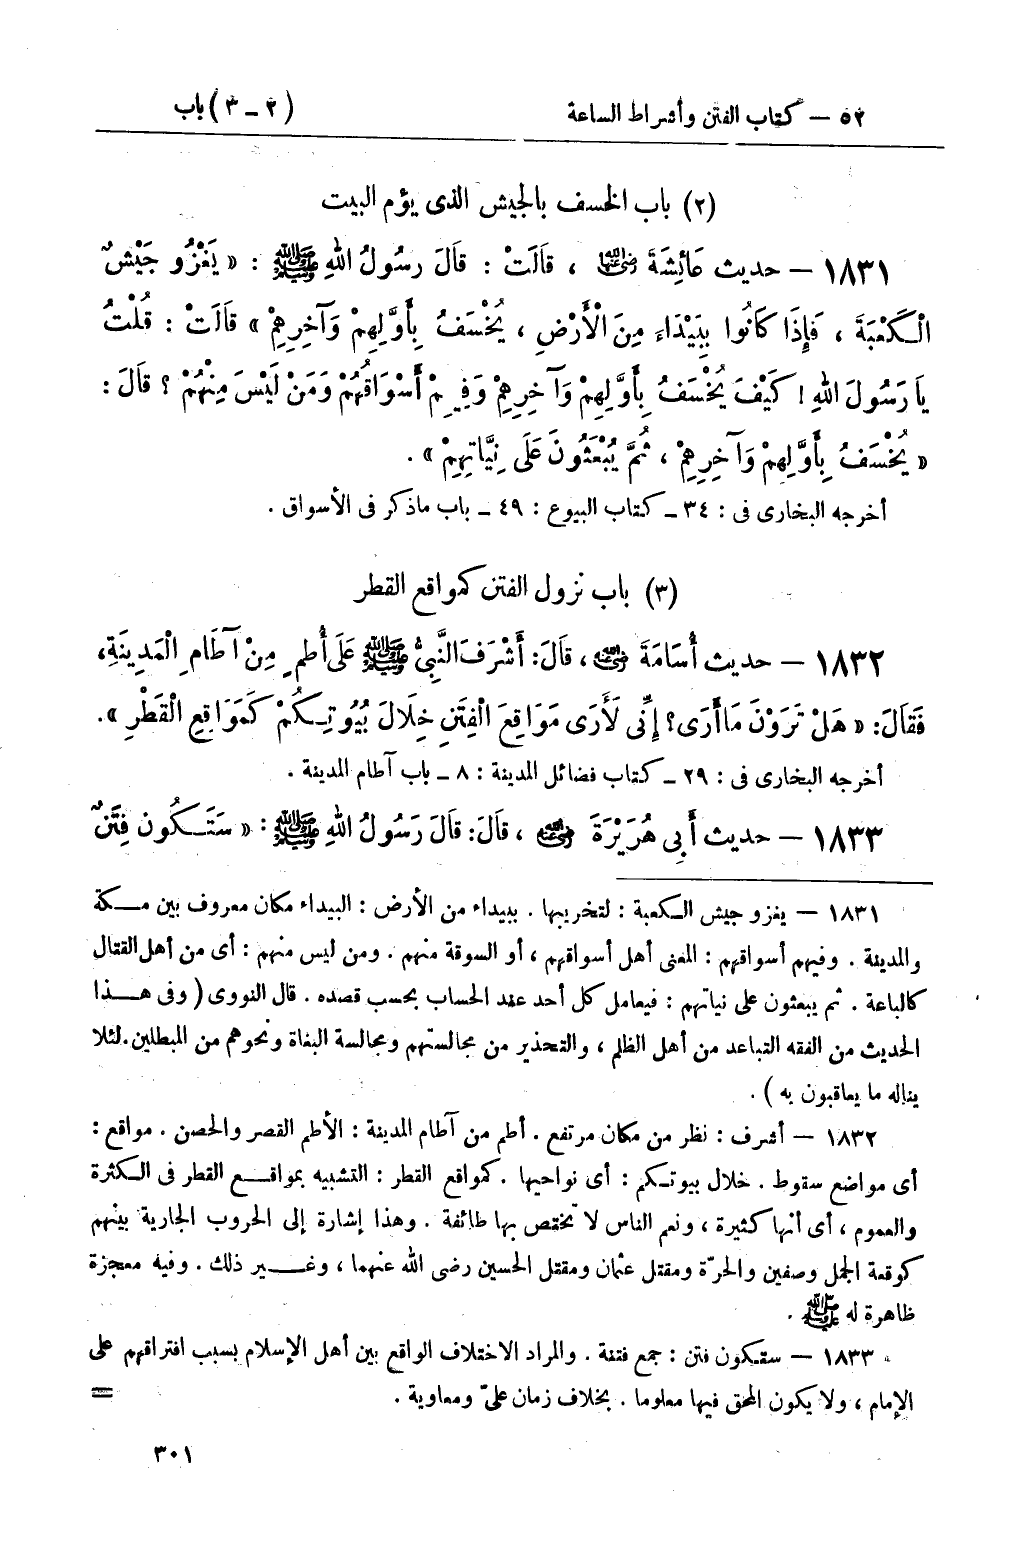 ٥٢ – كتاب الفتن وأشراط الساعة
(٢ – ٣) باب
(٢) باب الخسف بالجيش الذى يؤم البيت
١٨٣١ – حديث عَائِشَةَ رضي الله عنها ، قَالَتْ : قَالَ رَسُولُ اللهِ ﷺ : « يَغْزُو جَيْشٌ
الْكَعْبَةَ ، فَإِذَا كَانُوا بِبَيْدَاءَ مِنَ الْأَرْضِ ، يُخْسَفُ بِأَوَّلِهِمْ وَآخِرِهِمْ » قَالَتْ : قُلْتُ
يَا رَسُولَ اللهِ ! كَيْفَ يُخْسَفُ بِأَوَّلِهِمْ وَآخِرِهِمْ وَفِيهِمْ أَسْوَاقُهُمْ وَمَنْ لَيْسَ مِنْهُمْ ؟ قَالَ :
« يُخْسَفُ بِأَوَّلِهِمْ وَآخِرِهِمْ ، ثُمَّ يُبْعَثُونَ عَلَى نِيَّاتِهِمْ » .
أخرجه البخارى فى : ٣٤ ـ كتاب البيوع : ٤٩ ـ باب ماذكر فى الأسواق .
(٣) باب نزول الفتن كمواقع القطر
١٨٣٢ – حديث أُسَامَةَ رضي الله عنه ، قَالَ: أَشْرَفَ النَّبِيُّ ﷺ عَلَى أُطُمٍ مِنْ آطَامِ الْمَدِينَةِ،
فَقَالَ: « هَلْ تَرَوْنَ مَا أَرَى؟ إِنِّى لَأَرَى مَوَاقِعَ الْفِتَنِ خِلَالَ بُيُوتِكُمْ كَمَوَاقِعِ الْقَطْرِ ».
أخرجه البخارى فى : ٢٩ ـ كتاب فضائل المدينة : ٨ ـ باب آطام المدينة .
١٨٣٣ – حديث أَبِى هُرَيْرَةَ رضي الله عنه ، قَالَ: قَالَ رَسُولُ اللهِ ﷺ : « سَتَكُون فِتَنٌ
١٨٣١ – يغزو جيش الكعبة : لتخريبها . ببيداء من الأرض : البيداء مكان معروف بين مكة
والمدينة . وفيهم أسواقهم : المعنى أهل أسواقهم ، أو السوقة منهم . ومن ليس منهم : أى من أهل القتال
كالباعة . ثم يبعثون على نياتهم : فيعامل كل أحد عند الحساب بحسب قصده . قال النووى ( وفى هذا
الحديث من الفقه التباعد من أهل الظلم ، والتحذير من مجالستهم ومجالسة البغاة ونحوهم من المبطلين. لئلا
يناله ما يعاقبون به ) .
١٨٣٢ – أشرف : نظر من مكان مرتفع . أطم من آطام المدينة : الأطم القصر والحصن . مواقع :
أى مواضع سقوط . خلال بيوتكم : أى نواحيها . كمواقع القطر : التشبيه بمواقع القطر فى الكثرة
والعموم ، أى أنها كثيرة ، وتعم الناس لا تختص بها طائفة . وهذا إشارة إلى الحروب الجارية بينهم
كوقعة الجمل وصفين والحرّة ومقتل عثمان ومقتل الحسين رضى الله عنهما ، وغير ذلك . وفيه معجزة
ظاهرة له ﷺ .
١٨٣٣ – ستكون فتن : جمع فتنة . والمراد الاختلاف الواقع بين أهل الإسلام بسبب افتراقهم على
الإمام ، ولا يكون المحق فيها معلوما . بخلاف زمان علىّ ومعاوية . =
٣٠١